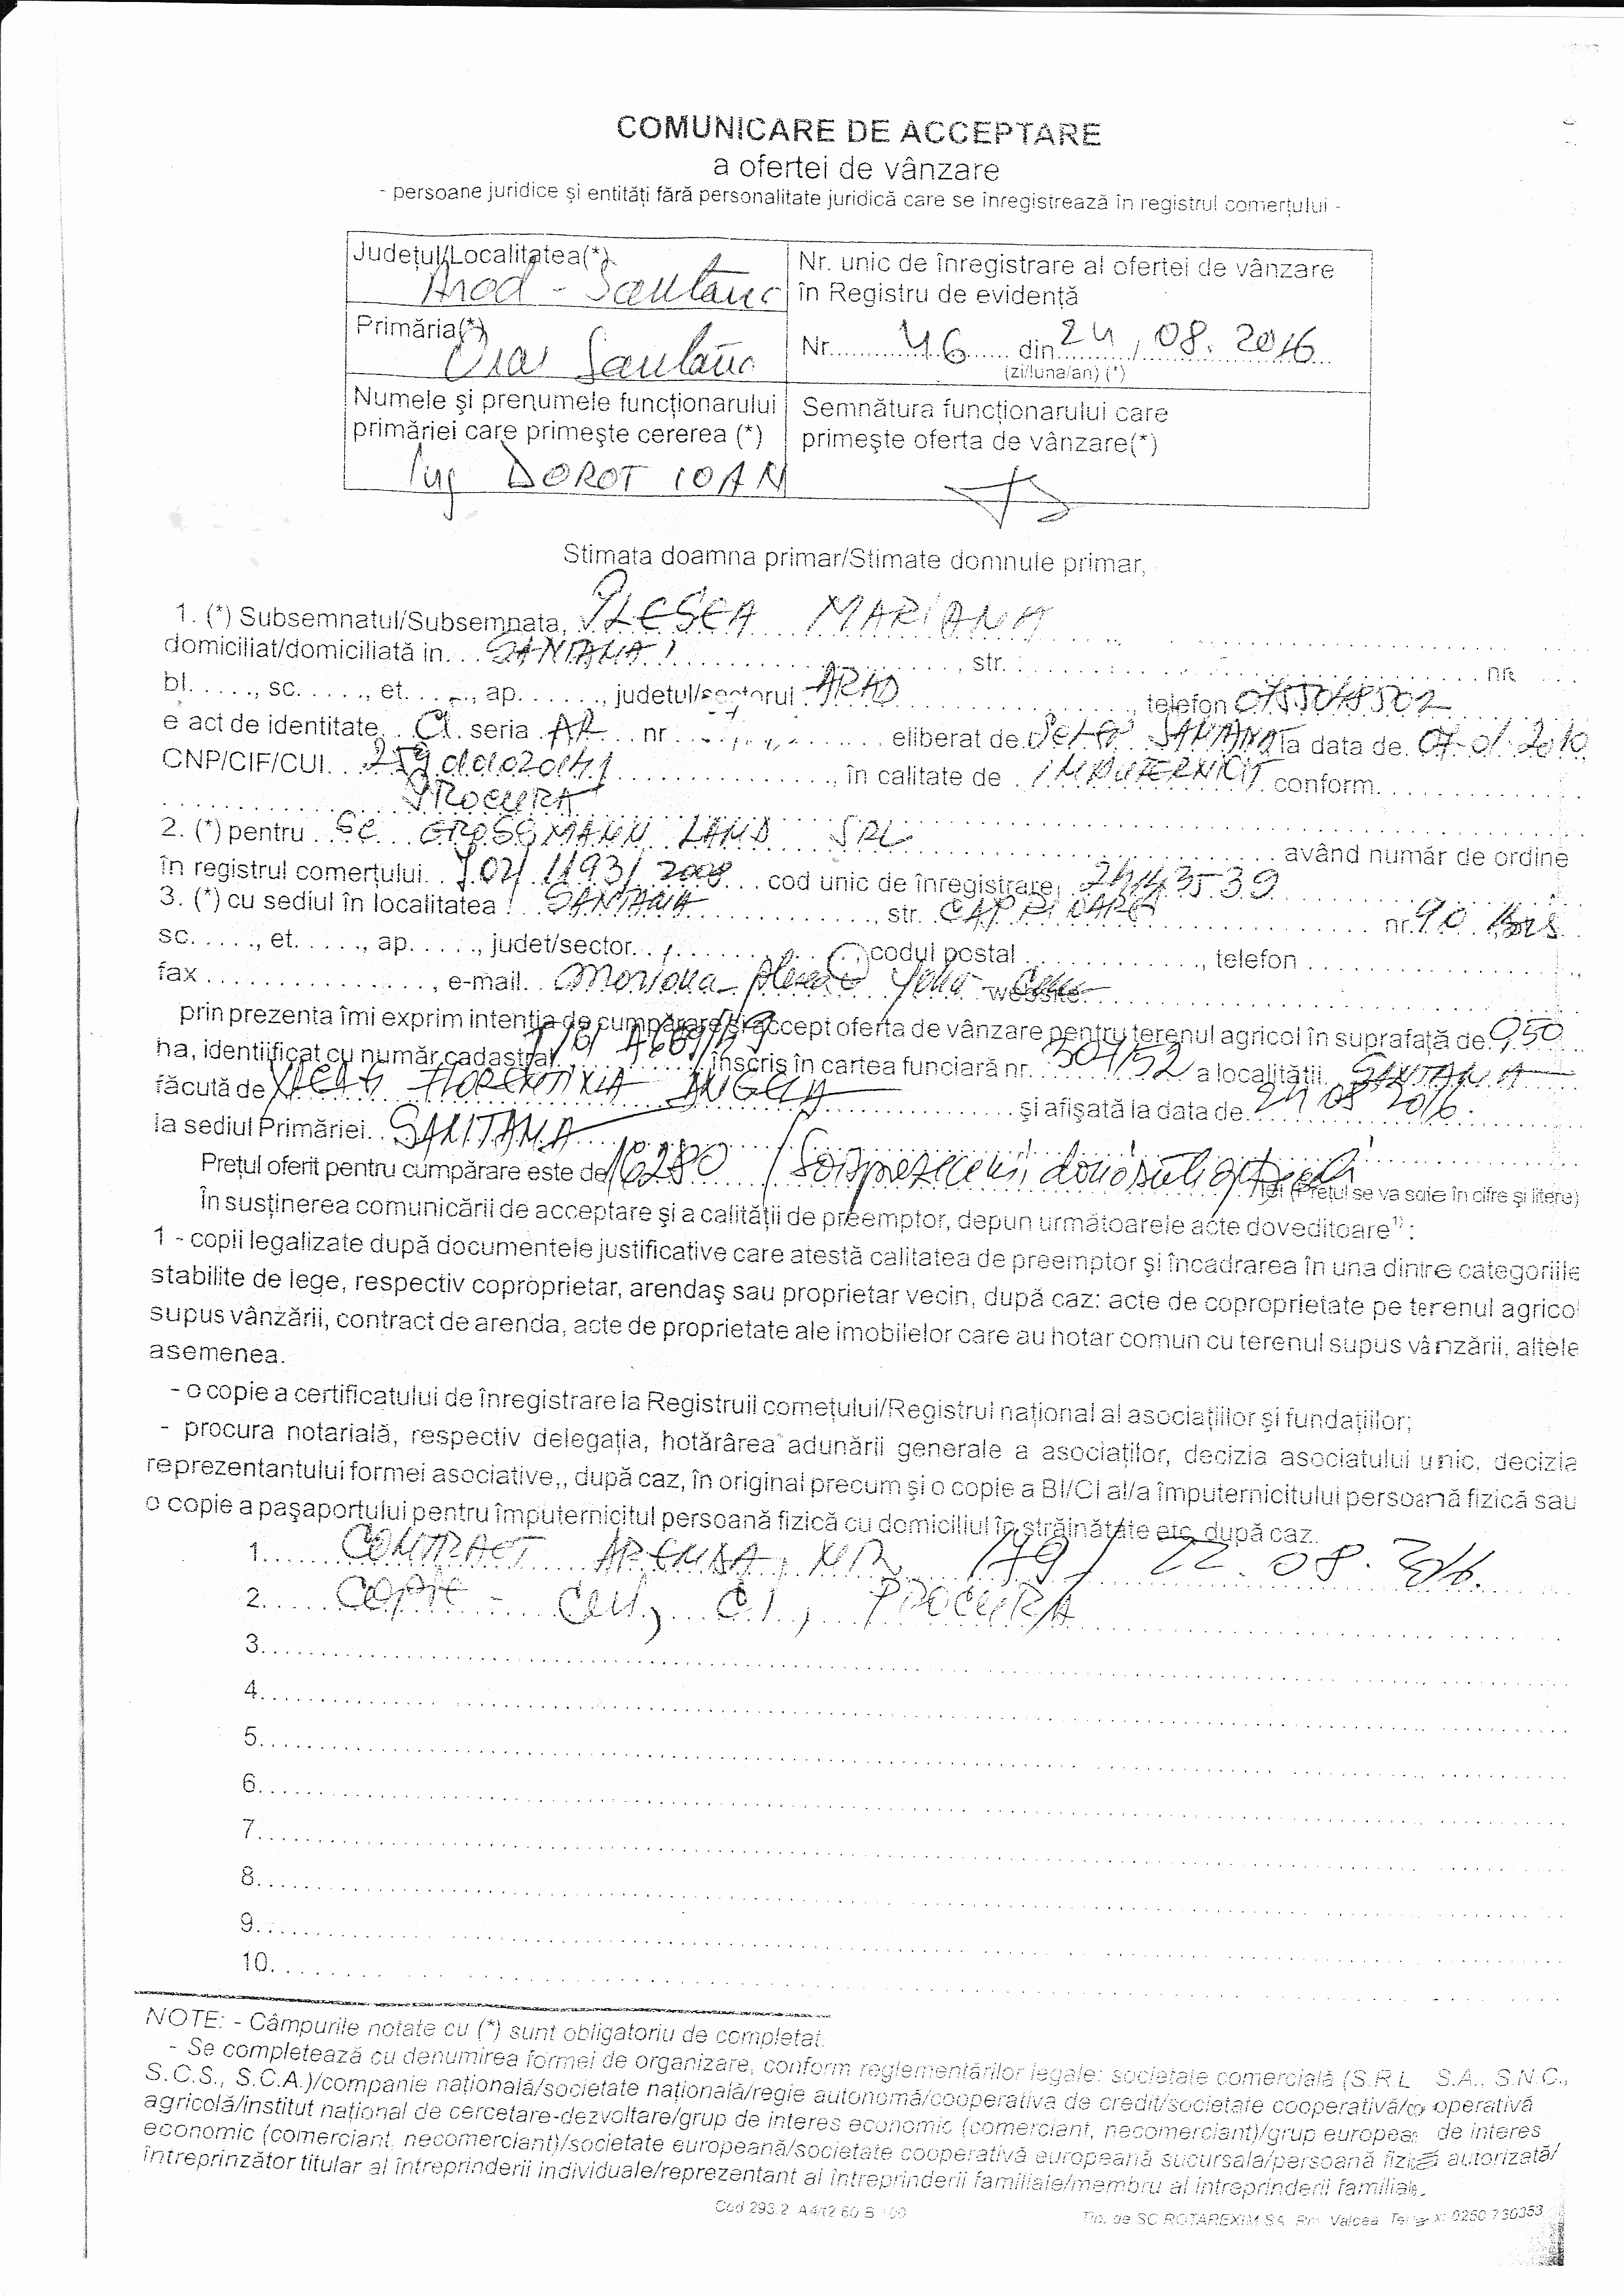 COMUNICARE DE ACCEPTARE
a ofertei de vânzare
- persoane juridice și entități fără personalitate juridică care se înregistrează în registrul comerțului -
Județul/Localitatea(*)
Arad - Santana
Nr. unic de înregistrare al ofertei de vânzare
în Registru de evidență
Primăria(*)
Oras Santana
Nr............46...... din 24, 08. 2016
(zi/luna/an) (*)
Numele și prenumele funcționarului
primăriei care primește cererea (*)
Ing DOROT IOAN
Semnătura funcționarului care
primește oferta de vânzare(*)
Stimata doamna primar/Stimate domnule primar,
1. (*) Subsemnatul/Subsemnata, PLESCA MARIANA
domiciliat/domiciliată in... SANTANA, str. nr.
bl....., sc....., et....., ap......, judetul/sectorul ARAD, telefon
e act de identitate, CI. seria AR nr eliberat de SANTANA la data de.
CNP/CIF/CUI..., în calitate de IMPUTERNICIT conform
PROCURA
2. (*) pentru SC GROSSMANN LAND SRL având număr de ordine
în registrul comerțului. J02/1193/2008 cod unic de înregistrare,
3. (*) cu sediul în localitatea SANTANA, str. nr. 90
sc....., et....., ap....., judet/sector........., codul postal ............., telefon
fax ................, e-mail. website
prin prezenta îmi exprim intenția de cumpărare și accept oferta de vânzare pentru terenul agricol în suprafață de. 0,50
ha, identificat cu număr cadastral înscris în cartea funciară nr. a localității. SANTANA
făcută de FLORENTINA ANGELA și afișată la data de. 24 08 2016.
la sediul Primăriei. SANTANA
Prețul oferit pentru cumpărare este de 16280 / lei (Prețul se va scrie în cifre și litere)
În susținerea comunicării de acceptare și a calității de preemptor, depun următoarele acte doveditoare¹⁾ :
1 - copii legalizate după documentele justificative care atestă calitatea de preemptor și încadrarea în una dintre categoriile
stabilite de lege, respectiv coproprietar, arendaș sau proprietar vecin, după caz: acte de coproprietate pe terenul agricol
supus vânzării, contract de arenda, acte de proprietate ale imobilelor care au hotar comun cu terenul supus vânzării, altele
asemenea.
- o copie a certificatului de înregistrare la Registruil comețului/Registrul național al asociațiilor și fundațiilor;
- procura notarială, respectiv delegația, hotărârea adunării generale a asociaților, decizia asociatului unic, decizia
reprezentantului formei asociative,, după caz, în original precum și o copie a BI/CI al/a împuternicitului persoană fizică sau
o copie a pașaportului pentru împuternicitul persoană fizică cu domiciliul în străinătate etc. după caz.
1. CONTRACT ARENDA, NR 179 / 22. 08. 2016.
2. COPIE - CUI, C.I., PROCURA
3.
4.
5.
6.
7.
8.
9.
10.
NOTE: - Câmpurile notate cu (*) sunt obligatoriu de completat.
- Se completează cu denumirea formei de organizare, conform reglementărilor legale: societate comercială (S.R.L S.A., S.N.C.,
S.C.S., S.C.A.)/companie națională/societate națională/regie autonomă/cooperativa de credit/societate cooperativă/cooperativă
agricolă/institut național de cercetare-dezvoltare/grup de interes economic (comerciant, necomerciant)/grup european de interes
economic (comerciant, necomerciant)/societate europeană/societate cooperativă europeană sucursala/persoană fizică autorizată/
întreprinzător titular al întreprinderii individuale/reprezentant al întreprinderii familiale/membru al întreprinderii familiale.
Cod 293.2 A4/t2 60 B 100
Tip. de SC ROTAREXIM SA Rm. Valcea 0250 730353